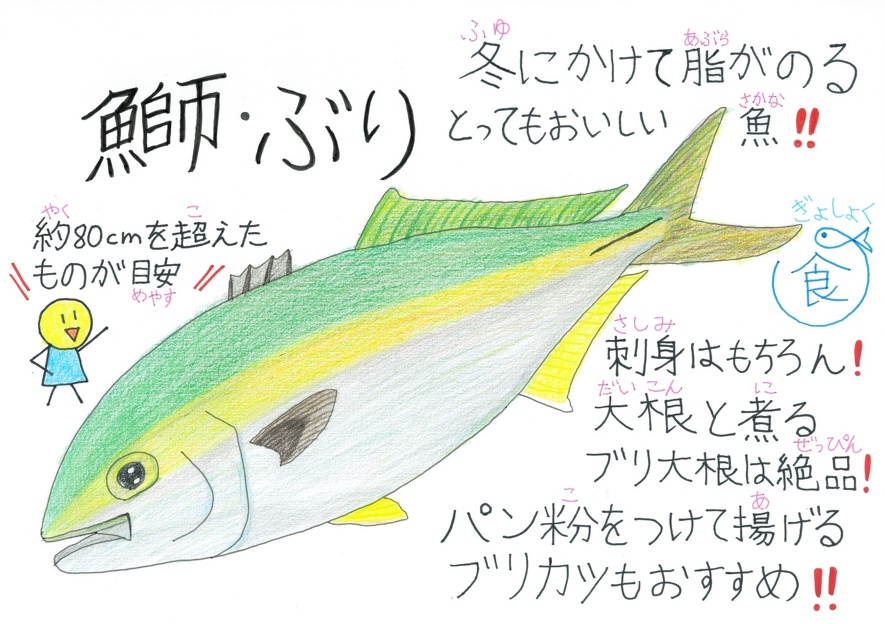 鰤・ぶり
ふゆ あぶら
冬にかけて脂がのる
さかな
とってもおいしい 魚!!
やく こ
約80cmを超えた
ものが目安
めやす
ぎょしょく
食
さしみ
刺身はもちろん!
だいこん に
大根と煮る
ぜっぴん
ブリ大根は絶品!
こ あ
パン粉をつけて揚げる
ブリカツもおすすめ!!